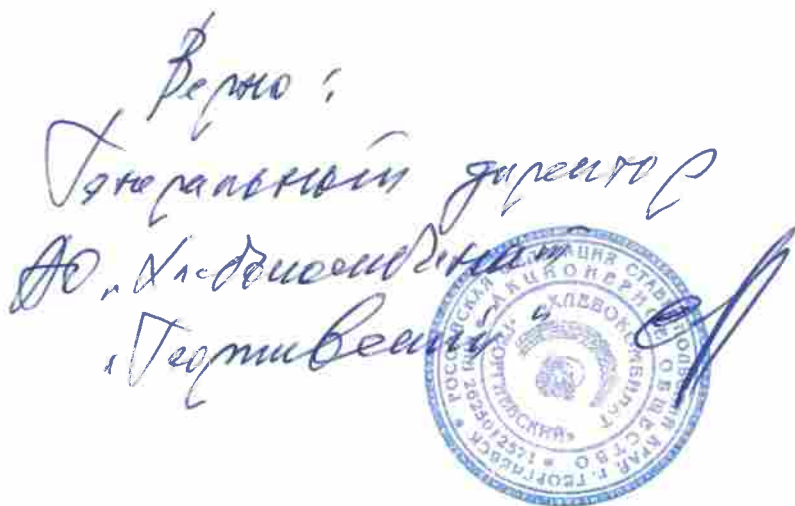 Верно:
Генеральный директор
АО „Хлебокомбинат
„Георгиевский"
РОССИЙСКАЯ ФЕДЕРАЦИЯ СТАВРОПОЛЬСКИЙ КРАЙ Г. ГЕОРГИЕВСК
АКЦИОНЕРНОЕ ОБЩЕСТВО
ХЛЕБОКОМБИНАТ
«ГЕОРГИЕВСКИЙ»
2625012571